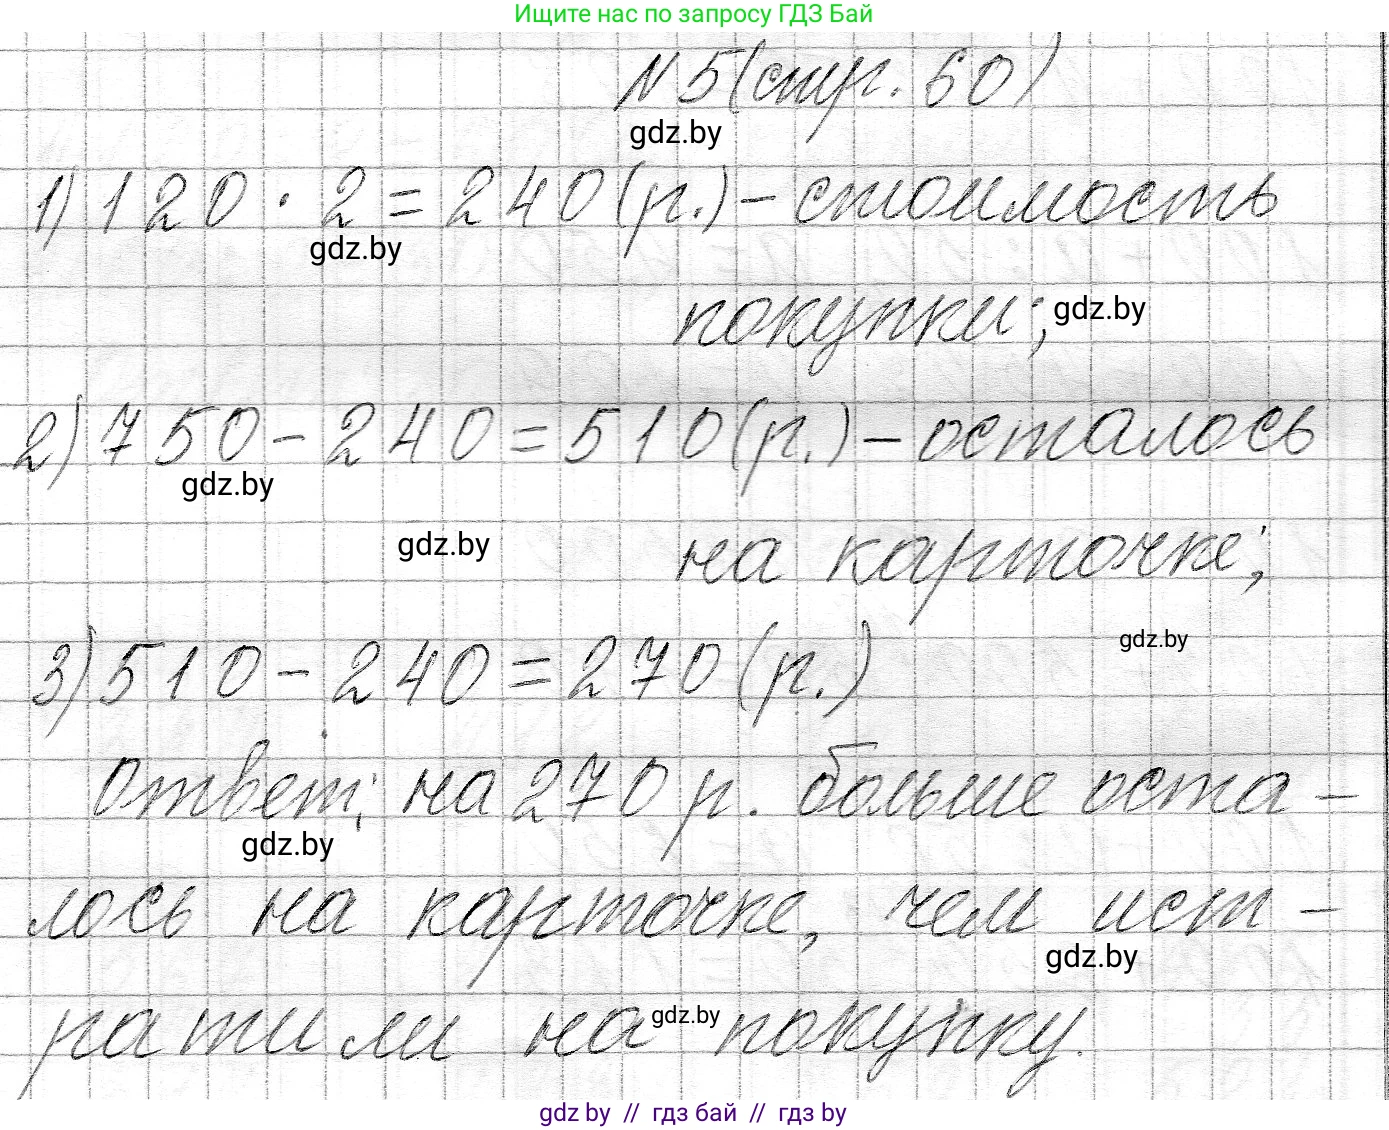 Ищите нас по запросу ГДЗ Бай
N 5 (стр. 60)
gdz.by
1) 120 · 2 = 240 (р.) - стоимость
gdz.by
покупки; gdz.by
2) 750 - 240 = 510 (р.) - осталось
gdz.by
gdz.by
на карточке;
gdz.by
3) 510 - 240 = 270 (р.)
Ответ: на 270 р. больше оста-
gdz.by
лось на карточке, чем ист-
gdz.by
ратили на покупку.
gdz.by
gdz by // гдз бай // гдз by